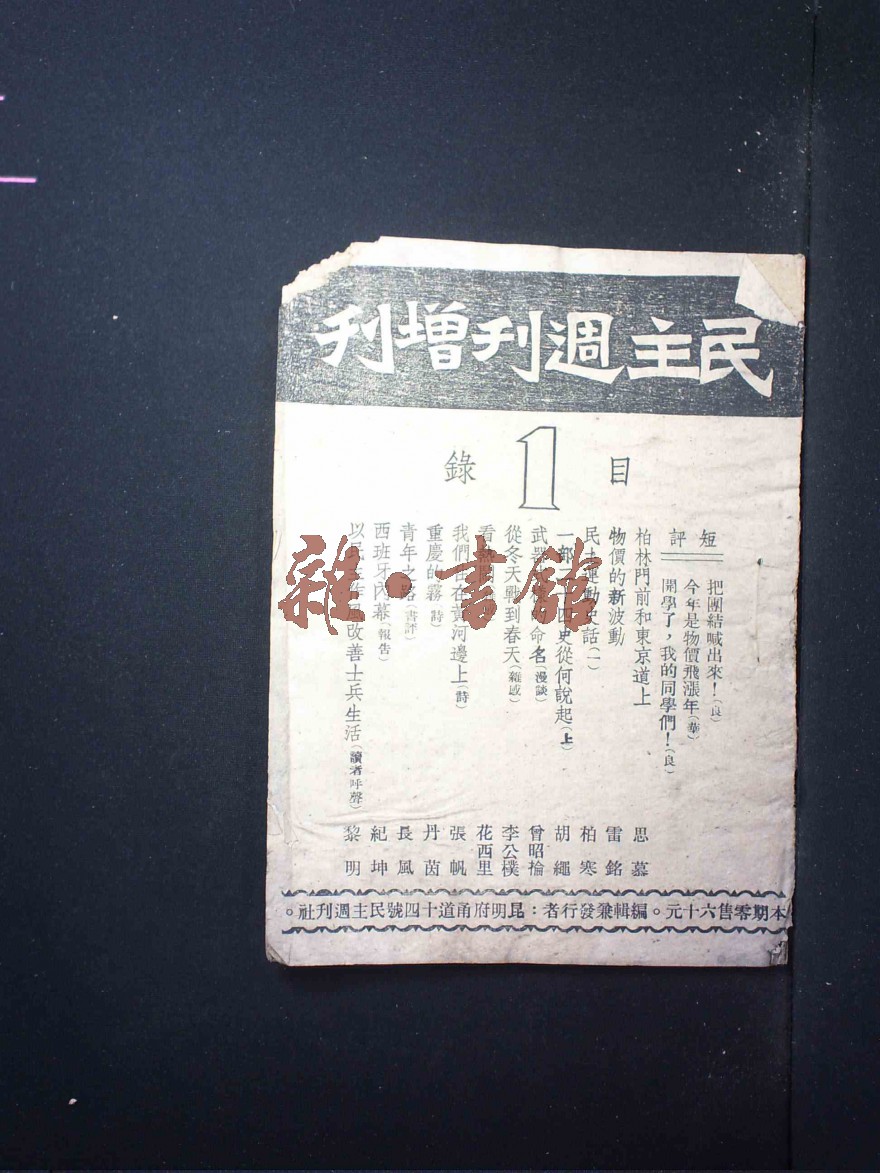 民主週刊增刊
目 1 錄
短評
把團結喊出來！（良）
今年是物價飛漲年（華）
開學了，我的同學們！（良）
柏林門前和東京道上 思慕
物價的新波動 雷銘
民主運動史話（一） 柏寒
一部二十四史從何說起（上） 胡繩
武器 的命名（漫談） 曾昭掄
從冬天戰到春天（雜感） 李公樸
看熱鬧 花西里
我們站在黃河邊上（詩） 張帆
重慶的霧（詩） 丹茵
青年之路（書評） 長風
西班牙內幕（報告） 紀坤
以民主作風改善士兵生活（讀者呼聲） 黎明
本期零售六十元。編輯兼發行者：昆明府甬道十四號民主週刊社。
雜·書館